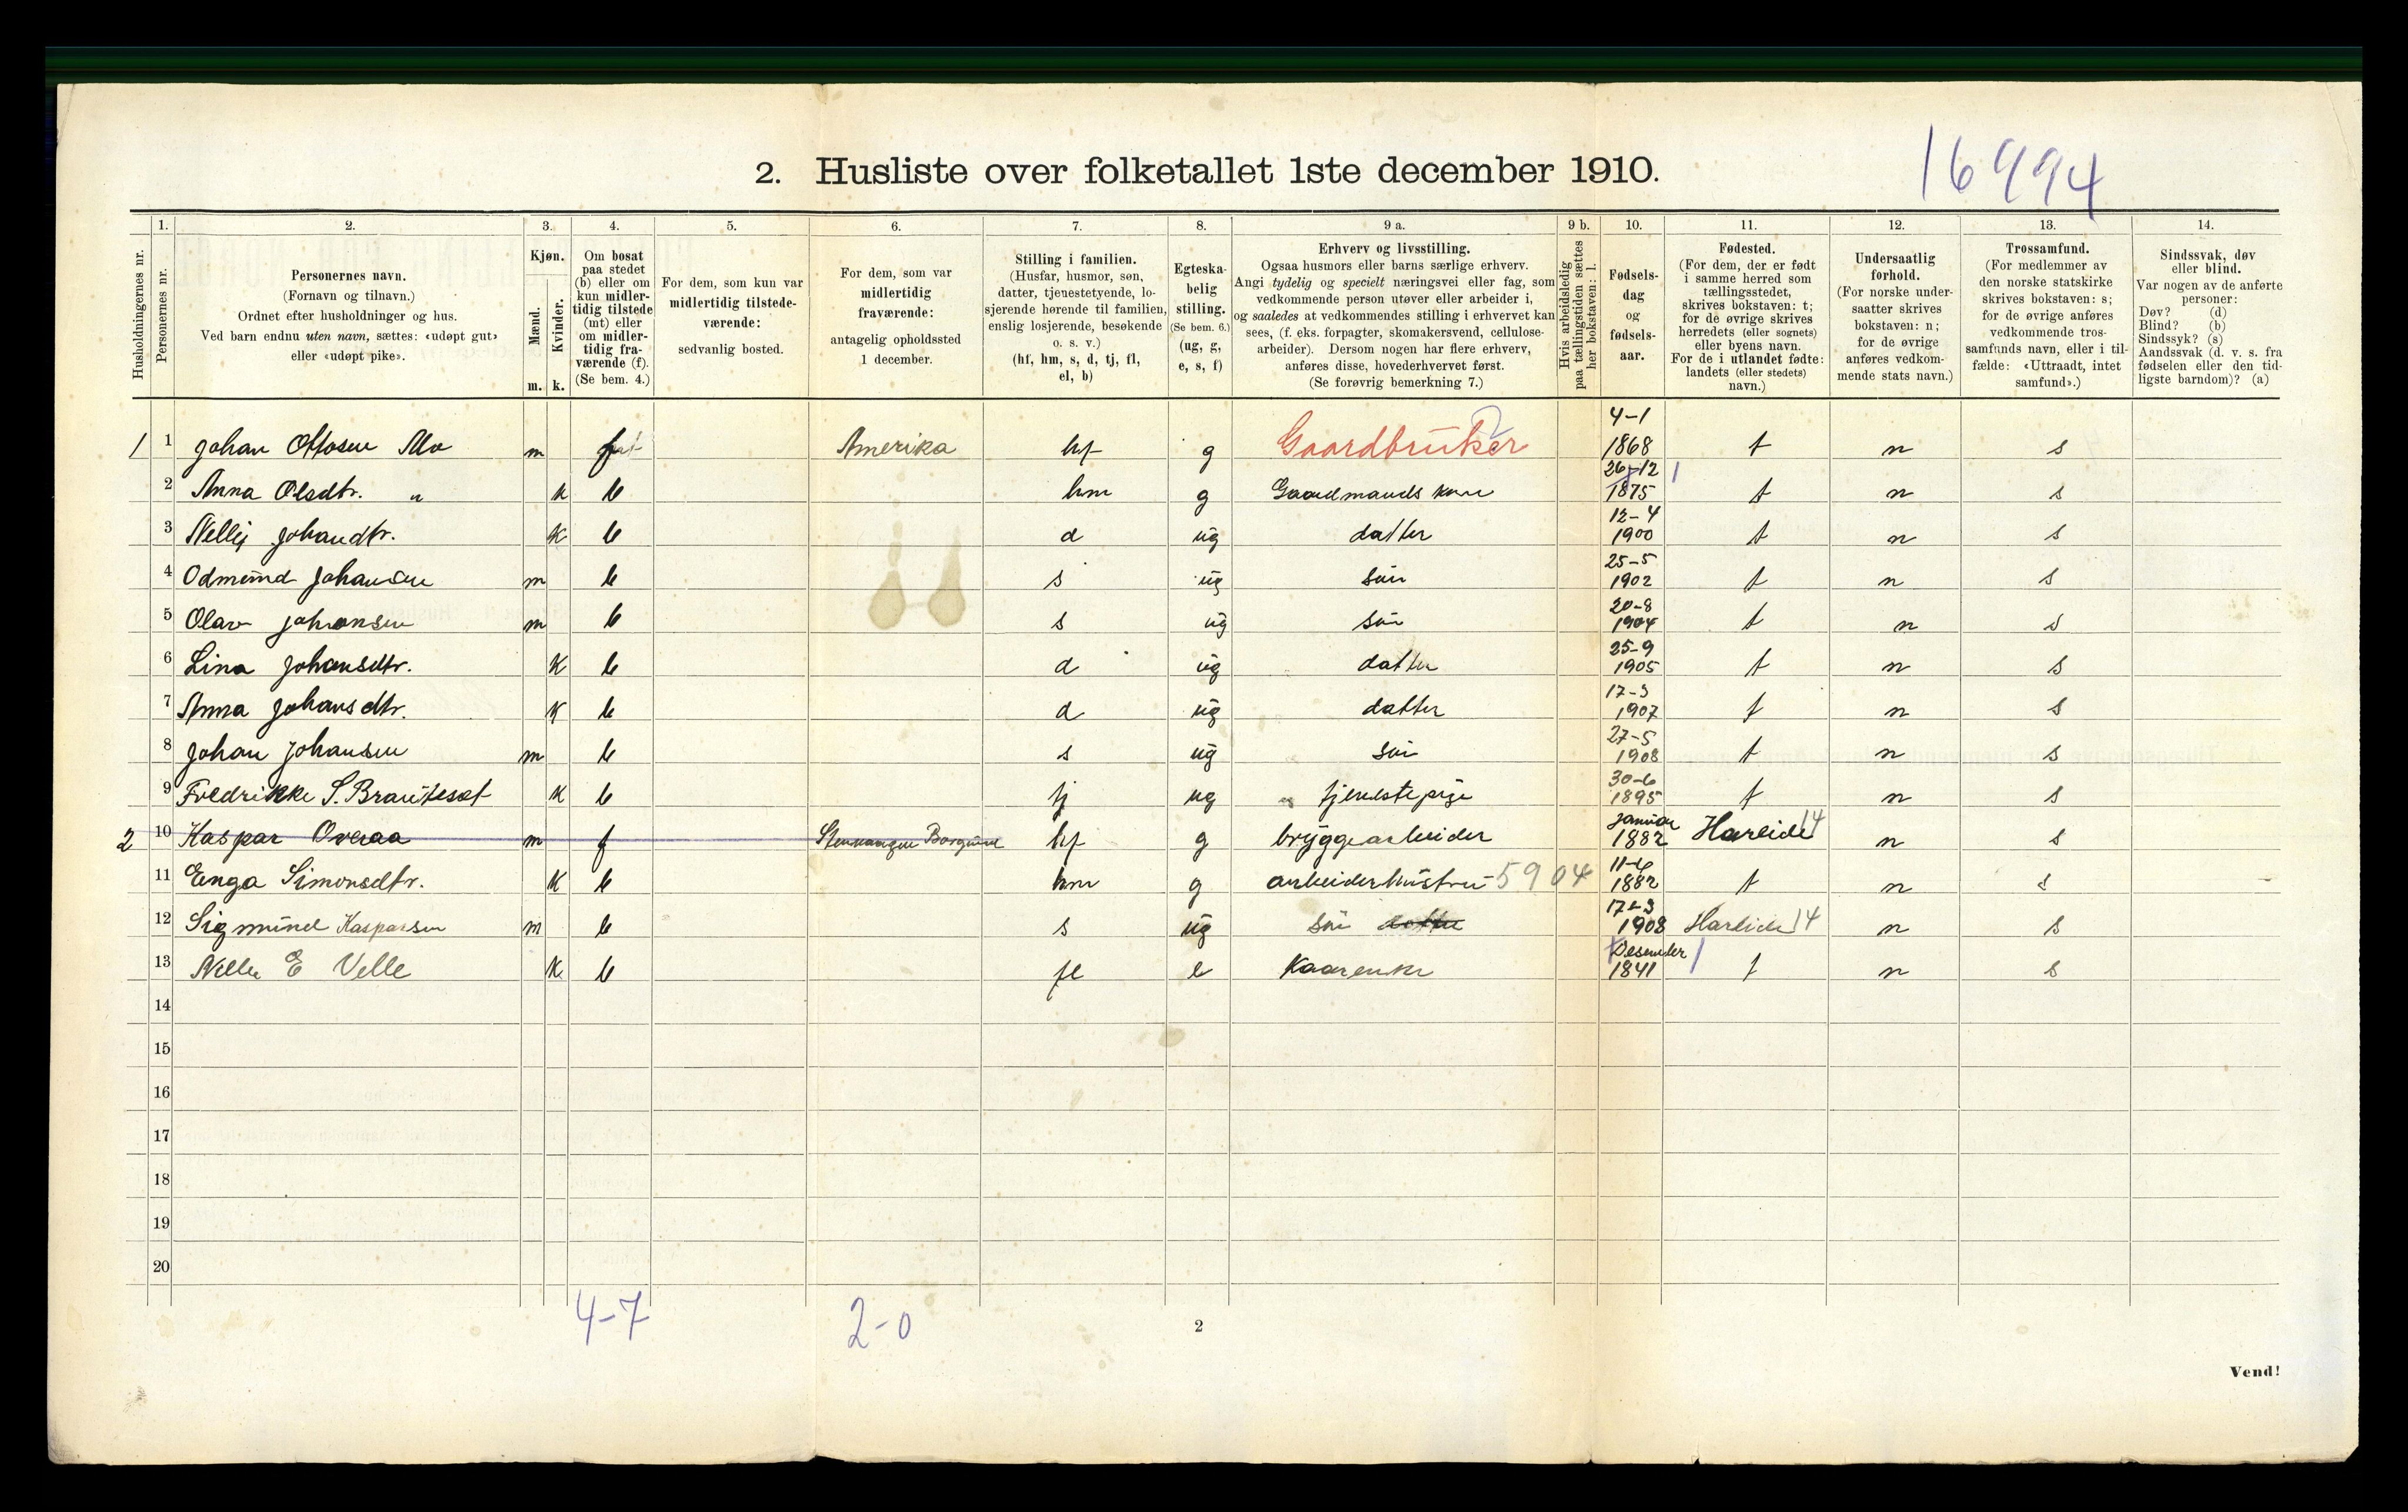 16994
2. Husliste over folketallet 1ste december 1910.
Husholdningernes nr.
1.
Personernes nr.
2.
Personernes navn.
(Fornavn og tilnavn.)
Ordnet efter husholdninger og hus.
Ved barn endnu uten navn, sættes: «udøpt gut»
eller «udøpt pike».
3.
Kjøn.
Mænd.
Kvinder.
m. k.
4.
Om bosat
paa stedet
(b) eller om
kun midler-
tidig tilstede
(mt) eller
om midler-
tidig fra-
værende (f).
(Se bem. 4.)
5.
For dem, som kun var
midlertidig tilstede-
værende:
sedvanlig bosted.
6.
For dem, som var
midlertidig
fraværende:
antagelig opholdssted
1 december.
7.
Stilling i familien.
(Husfar, husmor, søn,
datter, tjenestetyende, lo-
sjerende hørende til familien,
enslig losjerende, besøkende
o. s. v.)
(hf, hm, s, d, tj, fl,
el, b)
8.
Egteska-
belig
stilling.
(Se bem. 6.)
(ug, g,
e, s, f)
9 a.
Erhverv og livsstilling.
Ogsaa husmors eller barns særlige erhverv.
Angi tydelig og specielt næringsvei eller fag, som
vedkommende person utøver eller arbeider i,
og saaledes at vedkommendes stilling i erhvervet kan
sees, (f. eks. forpagter, skomakersvend, cellulose-
arbeider). Dersom nogen har flere erhverv,
anføres disse, hovederhvervet først.
(Se forøvrig bemerkning 7.)
9 b.
Hvis arbeidsledig
paa tællingstiden sættes
her bokstaven: l.
10.
Fødsels-
dag
og
fødsels-
aar.
11.
Fødested.
(For dem, der er født
i samme herred som
tællingsstedet,
skrives bokstaven: t;
for de øvrige skrives
herredets (eller sognets)
eller byens navn.
For de i utlandet fødte:
landets (eller stedets)
navn.)
12.
Undersaatlig
forhold.
(For norske under-
saatter skrives
bokstaven: n;
for de øvrige
anføres vedkom-
mende stats navn.)
13.
Trossamfund.
(For medlemmer av
den norske statskirke
skrives bokstaven: s;
for de øvrige anføres
vedkommende tros-
samfunds navn, eller i til-
fælde: «Uttraadt, intet
samfund».)
14.
Sindssvak, døv
eller blind.
Var nogen av de anførte
personer:
Døv? (d)
Blind? (b)
Sindssyk? (s)
Aandssvak (d. v. s. fra
fødselen eller den tid-
ligste barndom)? (a)
1 1 Johan Ottosen Mo m f Amerika hf g Gaardbruker 4-1 1868 t n s
2 Anna Olsdtr. " k b hm g Gaardmands kone 26-12 1875 t n s
3 Nellij Johandtr. k b d ug datter 12-4 1900 t n s
4 Odmund Johansen m b s ug sön 25-5 1902 t n s
5 Olav Johansen m b s ug sön 20-8 1904 t n s
6 Lina Johansdtr. k b d ug datter 25-9 1905 t n s
7 Anna Johansdtr. k b d ug datter 17-3 1907 t n s
8 Johan Johansen m b s ug sön 27-5 1908 t n s
9 Fredrikke S. k b tj ug tjenestepige 30-6 1895 t n s
2 10 Kaspar Overaa m f Borgund hf g bryggearbeider Januar 1882 Hareide 14 n s
11 Enga Simonsdtr. k b hm g arbeiderhustru 5904 11-6 1882 t n s
12 Sigmund Kasparsen m b s ug sön datter 17-3 1908 Hareide 14 n s
13 E Velle k b fl e Kaarenke Desember 1841 t n s
14
15
16
17
18
19
20
4-7
2-0
2
Vend!